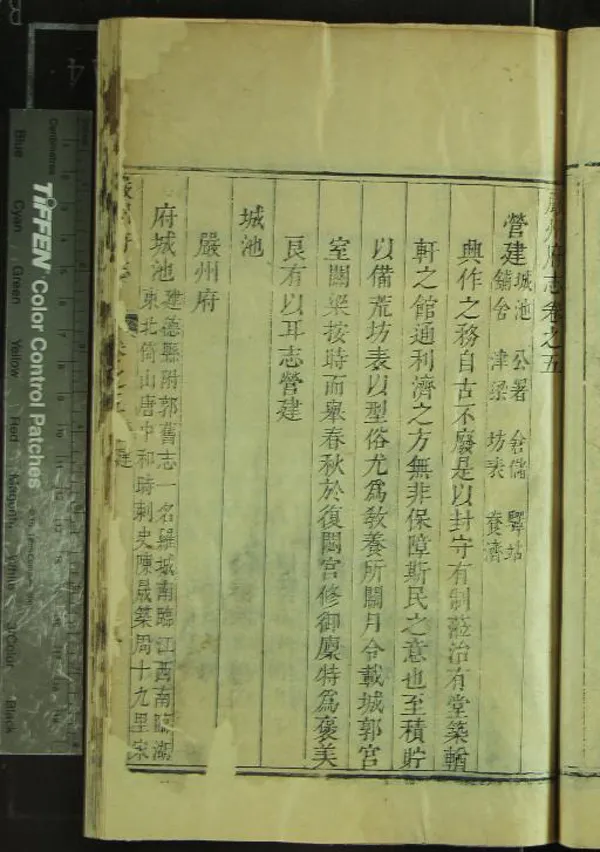 嚴州府志卷之五
營建 城池 公署 倉儲 驛站
舖舍 津梁 坊表 養濟
興作之務自古不廢是以封守有制蒞治有堂築輶
軒之館通利濟之方無非保障斯民之意也至積貯
以備荒坊表以型俗尤為敎養所關月令載城郭宮
室關梁按時而舉春秋於復閟宮修御廩特為褒美
良有以耳志營建
城池
嚴州府
府城池 建德縣附郭舊志一名羅城南臨江西南臨湖
東北倚山唐中和時刺史陳晟築周十九里宋
TIFFEN Color Control Patches
Centimetres
Blue
Cyan
Green
Yellow
Red
Magenta
White
3/Color
Black